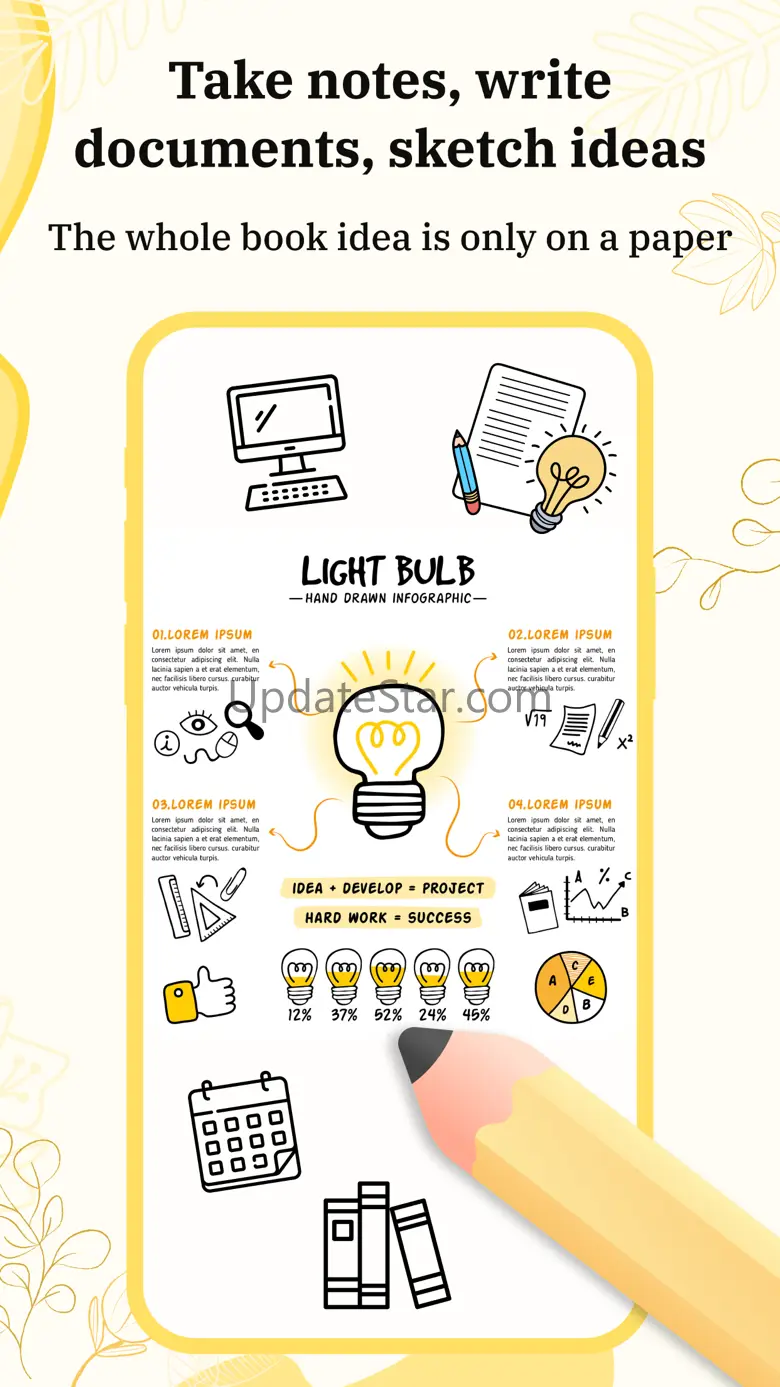 Take notes, write
documents, sketch ideas
The whole book idea is only on a paper
LIGHT BULB
HAND DRAWN INFOGRAPHIC
01.LOREM IPSUM
Lorem ipsum dolor sit amet, en
consectetur adipiscing elit. Nulla
lacinia sapien a et erat elementum,
nec facilisis libero cursus. curabitur
auctor vehicula turpis.
02.LOREM IPSUM
Lorem ipsum dolor sit amet, en
consectetur adipiscing elit. Nulla
lacinia sapien a et erat elementum,
nec facilisis libero cursus. curabitur
auctor vehicula turpis.
UpdateStar.com
i
√19
X²
03.LOREM IPSUM
Lorem ipsum dolor sit amet, en
consectetur adipiscing elit. Nulla
lacinia sapien a et erat elementum,
nec facilisis libero cursus. curabitur
auctor vehicula turpis.
04.LOREM IPSUM
Lorem ipsum dolor sit amet, en
consectetur adipiscing elit. Nulla
lacinia sapien a et erat elementum,
nec facilisis libero cursus. curabitur
auctor vehicula turpis.
A % C
B
IDEA + DEVELOP = PROJECT
HARD WORK = SUCCESS
12% 37% 52% 24% 45%
C
A E
D B